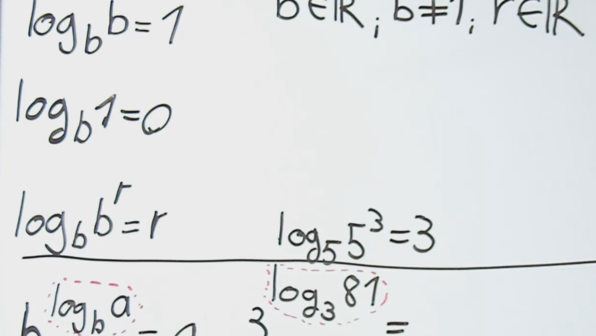 log_b b = 1 b∈ℝ; b≠1; r∈ℝ
log_b 1 = 0
log_b b^r = r log_5 5^3 = 3
b^(log_b a) = 3^(log_3 81) =